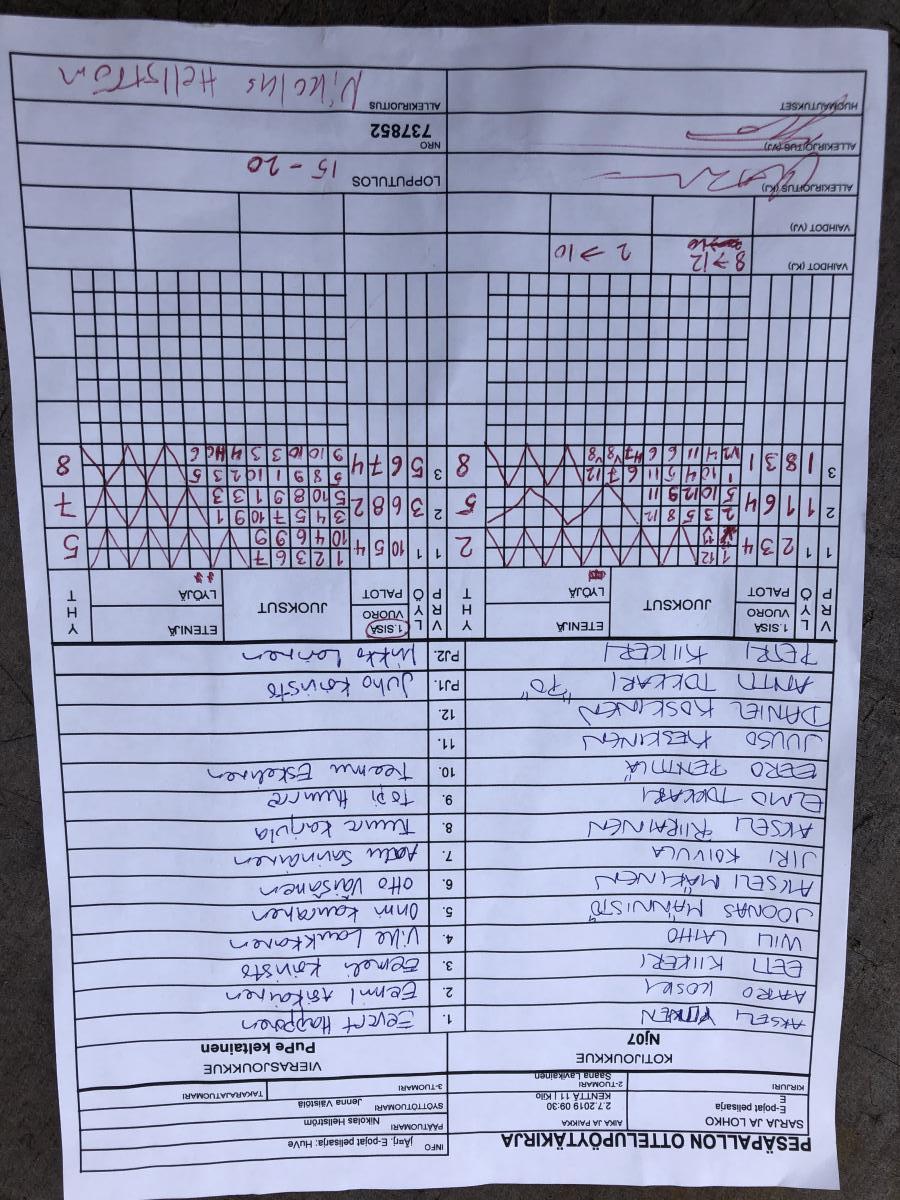 PESÄPALLON OTTELUPÖYTÄKIRJA
INFO
jÄrj. E-pojat pelisarja: HuVe
SARJA JA LOHKO
E-pojat pelisarja
E
AIKA JA PAIKKA
2.7.2019 09:30
KENTTÄ 11 | Kilo
PÄÄTUOMARI
Nikolas Hellström
SYÖTTÖTUOMARI
Jenna Väistölä
KIRJURI
2-TUOMARI
Saana Lavikainen
3-TUOMARI
TAKARAJATUOMARI
KOTIJOUKKUE
Nj07
VIERASJOUKKUE
PuPe keltainen
AKSELI
1.
Eevert Happonen
AARO KOSKI
2.
Eemil Asikainen
EETI KIIKERI
3.
Eemeli Koivisto
WILI LAIHO
4.
Ville Laukkanen
JOONAS MÄNNISTÖ
5.
Onni Kauranen
AKSELI MÄKINEN
6.
Otto Väisänen
JIRI KOIVULA
7.
Aatu Savinainen
AKSELI RIIKAINEN
8.
Karjula
ELMO TOKKARI
9.
Topi
EERO PENTTILÄ
10.
Teemu Eskelinen
JUUSO KESKINEN
11.
DANIEL KOSKINEN
12.
ANTTI TOKKARI "70"
PJ1.
Juho Koivisto
PETRI KIIKERI
PJ2.
Mikko Loinen
V P R
L Y Ö
1.SISÄ VUORO
PALOT
JUOKSUT
ETENIJÄ
LYÖJÄ
Y H T
V P R
L Y Ö
1.SISÄ VUORO
PALOT
JUOKSUT
ETENIJÄ
LYÖJÄ
Y H T
1 1 2 3 4
2
1 1 10 5 4
1 2 3 6 7
10 4 6 9 9
5
2 1 1 6 4
2 3 5 8 12
5 10 12 9 11
5
2 3 6 8 2
3 4 5 7 10 9 1
5 10 8 9 1 3 3
7
3 1 8 3 1
1 10 4 5 11 6 7 12
8
3 5 6 7 4
5 8 9 1 10 2 3 5
8
VAIHDOT (KJ)
8→12
2→10
VAIHDOT (VJ)
ALLEKIRJOITUS (KJ)
LOPPUTULOS
15 - 20
ALLEKIRJOITUS (VJ)
NRO
737852
HUOMAUTUKSET
ALLEKIRJOITUS
Nikolas Hellström